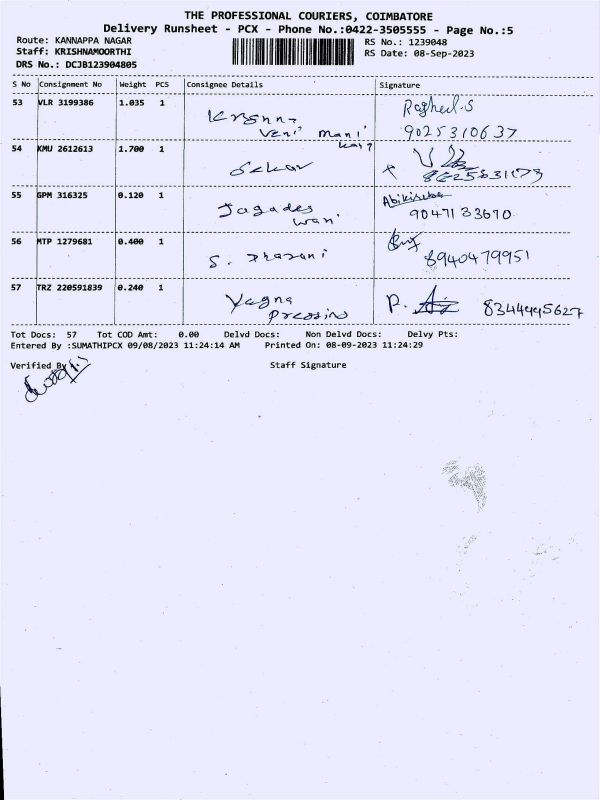 THE PROFESSIONAL COURIERS, COIMBATORE
Delivery Runsheet - PCX - Phone No.:0422-3505555 - Page No.:5
Route: KANNAPPA NAGAR
RS No.: 1239048
Staff: KRISHNAMOORTHI
RS Date: 08-Sep-2023
DRS No.: DCJB123904805
S No Consignment No Weight PCS Consignee Details Signature
53 VLR 3199386 1.035 1
Veni Mani
9025310637
54 KMU 2612613 1.700 1 Sekar
55 GPM 316325 0.120 1 Jagades
wari
9047133670
56 MTP 1279681 0.400 1 S. Dharani
8940479951
57 TRZ 220591839 0.240 1 Yagna
P.
8344445627
Tot Docs: 57 Tot COD Amt: 0.00 Delvd Docs: Non Delvd Docs: Delvy Pts:
Entered By :SUMATHIPCX 09/08/2023 11:24:14 AM Printed On: 08-09-2023 11:24:29
Verified By
Staff Signature